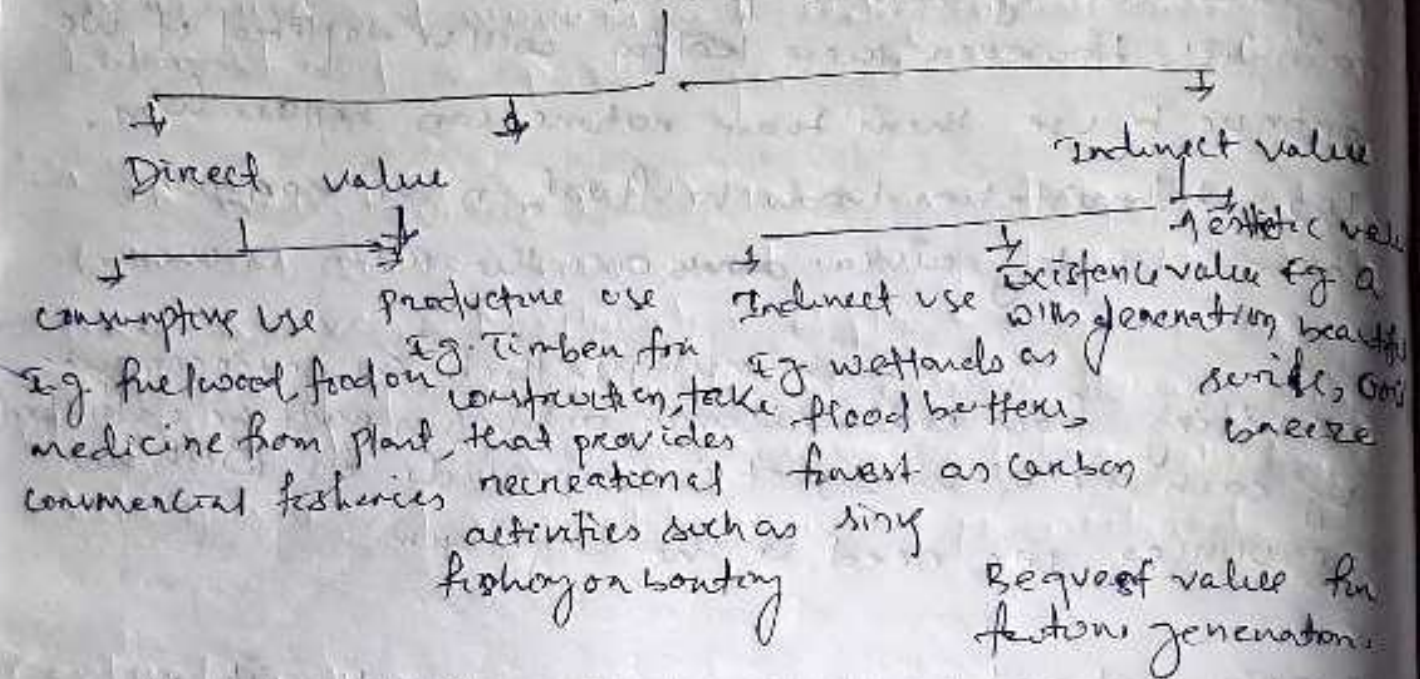 Direct value
Indirect value
consumptive use
E.g. fuelwood, food or
medicine from plant,
commercial fisheries
productive use
E.g. Timber for
construction, lake
that provides
recreational
activities such as
fishing or boating
Indirect use
Eg wetlands as
flood buffers,
forest as carbon
sink
Existence value
with generation
Aesthetic
Eg a
breeze
Bequest value for
generation.